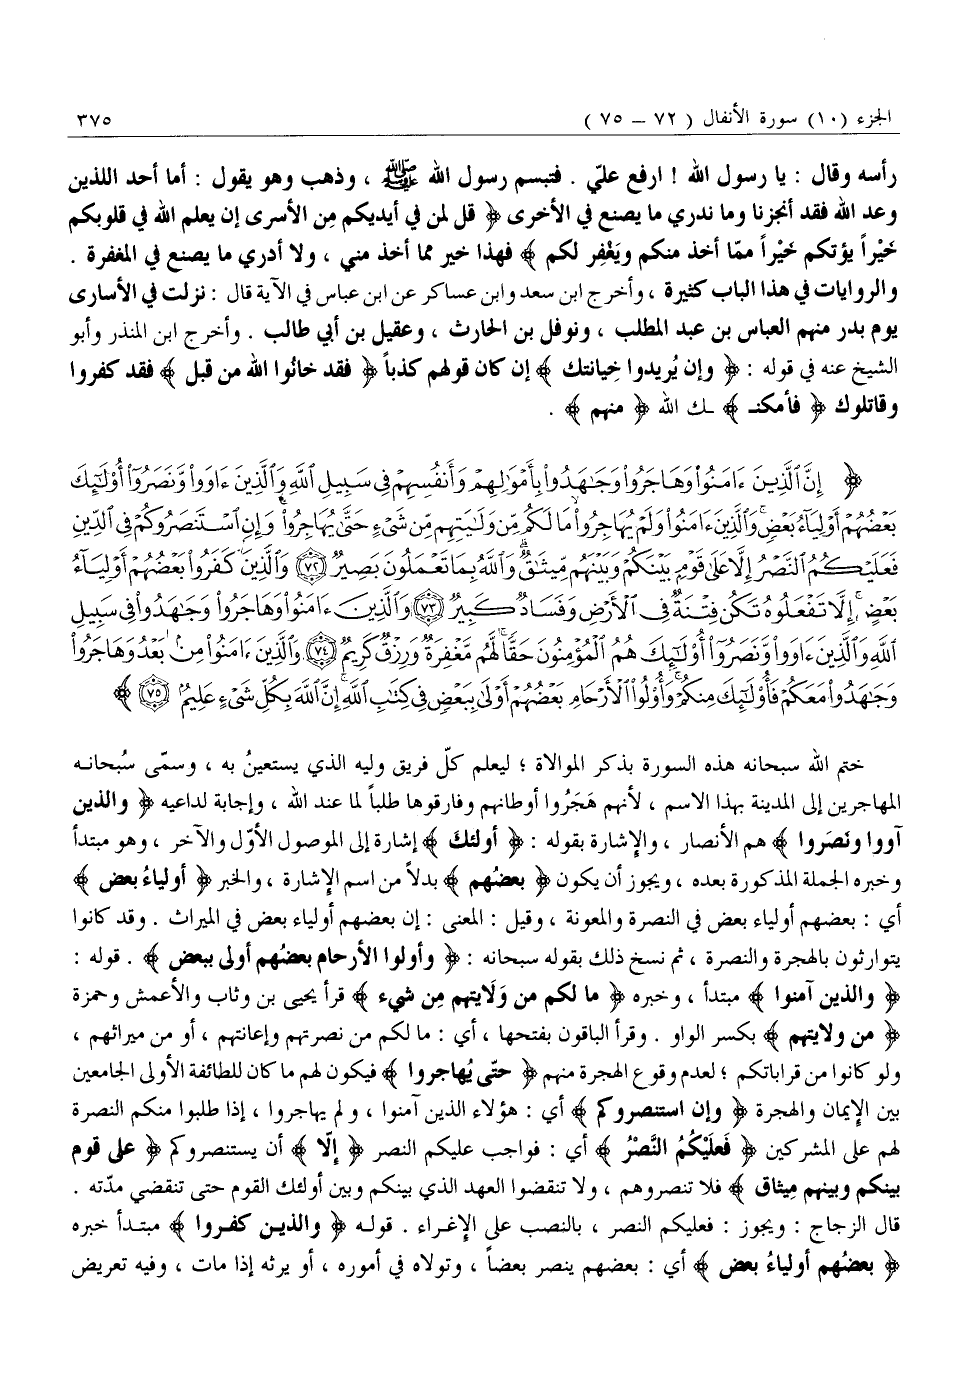 الجزء (١٠) سورة الأنفال ( ٧٢ – ٧٥ ) ٣٧٥
رأسه وقال : يا رسول الله ! ارفع عليّ . فتبسم رسول الله ﷺ ، وذهب وهو يقول : أما أحد اللذين
وعد الله فقد أنجزنا وما ندري ما يصنع في الأخرى ﴿ قل لمن في أيديكم مِن الأسرى إن يعلم الله في قلوبكم
خَيْراً يؤتكم خَيْراً ممّا أخذ منكم ويَغْفر لكم ﴾ فهذا خير مما أخذ مني ، ولا أدري ما يصنع في المغفرة .
والروايات في هذا الباب كثيرة ، وأخرج ابن سعد وابن عساكر عن ابن عباس في الآية قال : نزلت في الأسارى
يوم بدر منهم العباس بن عبد المطلب ، ونوفل بن الحارث ، وعقيل بن أبي طالب . وأخرج ابن المنذر وأبو
الشيخ عنه في قوله : ﴿ وإن يُريدوا خِيانتك ﴾ إن كان قولهم كذباً ﴿ فقد خانُوا الله من قبل ﴾ فقد كفروا
وقاتلوك ﴿ فأمكنـ ﴾ ـك الله ﴿ منهم ﴾ .
﴿ إِنَّ ٱلَّذِينَ ءَامَنُوا۟ وَهَاجَرُوا۟ وَجَٰهَدُوا۟ بِأَمْوَٰلِهِمْ وَأَنفُسِهِمْ فِى سَبِيلِ ٱللَّهِ وَٱلَّذِينَ ءَاوَوا۟ وَّنَصَرُوٓا۟ أُو۟لَٰٓئِكَ
بَعْضُهُمْ أَوْلِيَآءُ بَعْضٍ ۚ وَٱلَّذِينَ ءَامَنُوا۟ وَلَمْ يُهَاجِرُوا۟ مَا لَكُم مِّن وَلَٰيَتِهِم مِّن شَىْءٍ حَتَّىٰ يُهَاجِرُوا۟ ۚ وَإِنِ ٱسْتَنصَرُوكُمْ فِى ٱلدِّينِ
فَعَلَيْكُمُ ٱلنَّصْرُ إِلَّا عَلَىٰ قَوْمٍۭ بَيْنَكُمْ وَبَيْنَهُم مِّيثَٰقٌ ۗ وَٱللَّهُ بِمَا تَعْمَلُونَ بَصِيرٌ ٧٢ وَٱلَّذِينَ كَفَرُوا۟ بَعْضُهُمْ أَوْلِيَآءُ
بَعْضٍ ۚ إِلَّا تَفْعَلُوهُ تَكُن فِتْنَةٌ فِى ٱلْأَرْضِ وَفَسَادٌ كَبِيرٌ ٧٣ وَٱلَّذِينَ ءَامَنُوا۟ وَهَاجَرُوا۟ وَجَٰهَدُوا۟ فِى سَبِيلِ
ٱللَّهِ وَٱلَّذِينَ ءَاوَوا۟ وَّنَصَرُوٓا۟ أُو۟لَٰٓئِكَ هُمُ ٱلْمُؤْمِنُونَ حَقًّا ۚ لَّهُم مَّغْفِرَةٌ وَرِزْقٌ كَرِيمٌ ٧٤ وَٱلَّذِينَ ءَامَنُوا۟ مِنۢ بَعْدُ وَهَاجَرُوا۟
وَجَٰهَدُوا۟ مَعَكُمْ فَأُو۟لَٰٓئِكَ مِنكُمْ ۚ وَأُو۟لُوا۟ ٱلْأَرْحَامِ بَعْضُهُمْ أَوْلَىٰ بِبَعْضٍ فِى كِتَٰبِ ٱللَّهِ ۗ إِنَّ ٱللَّهَ بِكُلِّ شَىْءٍ عَلِيمٌۢ ٧٥ ﴾
ختم الله سبحانه هذه السورة بذكر الموالاة ؛ ليعلم كلّ فريق وليه الذي يستعينُ به ، وسمّى سُبحانـه
المهاجرين إلى المدينة بهذا الاسم ، لأنهم هَجَرُوا أوطانهم وفارقوها طلباً لما عند الله ، وإجابة لداعيه ﴿ والذين
آووا ونَصَروا ﴾ هم الأنصار ، والإشارة بقوله : ﴿ أولئك ﴾ إشارة إلى الموصول الأوّل والآخر ، وهو مبتدأ
وخبره الجملة المذكورة بعده ، ويجوز أن يكون ﴿ بعضُهم ﴾ بدلاً من اسم الإشارة ، والخبر ﴿ أولياءُ بعض ﴾
أي : بعضهم أولياء بعض في النصرة والمعونة ، وقيل : المعنى : إن بعضهم أولياء بعض في الميراث . وقد كانوا
يتوارثون بالهجرة والنصرة ، ثم نسخ ذلك بقوله سبحانه : ﴿ وأولوا الأرحام بعضُهم أولى ببعض ﴾ . قوله :
﴿ والذين آمنوا ﴾ مبتدأ ، وخبره ﴿ ما لكم من وَلَايتهم مِن شيء ﴾ قرأ يحيى بن وثاب والأعمش وحمزة
﴿ من ولايتهم ﴾ بكسر الواو . وقرأ الباقون بفتحها ، أي : ما لكم من نصرتهم وإعانتهم ، أو من ميراثهم ،
ولو كانوا من قراباتكم ؛ لعدم وقوع الهجرة منهم ﴿ حتّى يُهاجروا ﴾ فيكون لهم ما كان للطائفة الأولى الجامعين
بين الإيمان والهجرة ﴿ وإن استنصروكم ﴾ أي : هؤلاء الذين آمنوا ، ولم يهاجروا ، إذا طلبوا منكم النصرة
لهم على المشركين ﴿ فَعَلَيْكُمُ النَّصْرُ ﴾ أي : فواجب عليكم النصر ﴿ إلّا ﴾ أن يستنصروكم ﴿ على قوم
بينكم وبينهم مِيثاق ﴾ فلا تنصروهم ، ولا تنقضوا العهد الذي بينكم وبين أولئك القوم حتى تنقضي مدّته .
قال الزجاج : ويجوز : فعليكم النصر ، بالنصب على الإغراء . قولـه ﴿ والذيـن كفـروا ﴾ مبتـدأ خبره
﴿ بعضُهم أولياءُ بعض ﴾ أي : بعضهم ينصر بعضاً ، وتولاه في أموره ، أو يرثه إذا مات ، وفيه تعريض